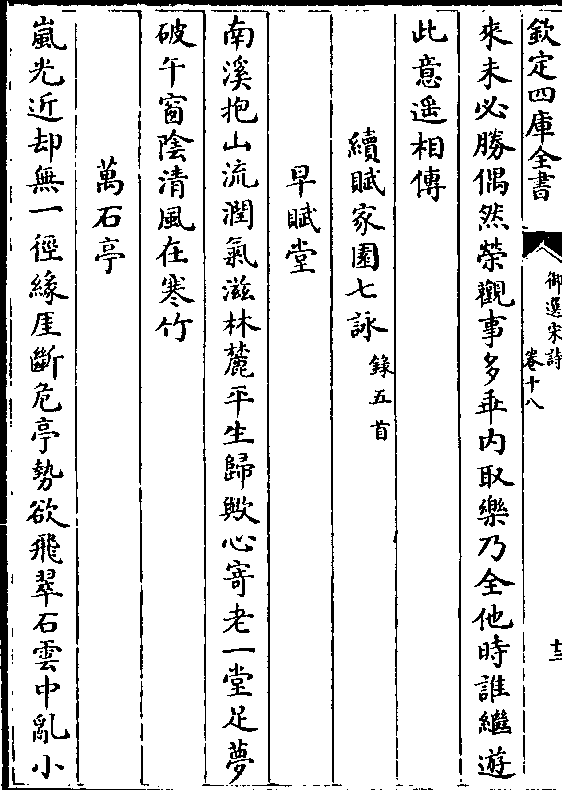 欽定四庫全書
御選宋詩
卷十八
十三
來未必勝偶然榮觀事多乖内取樂乃全他時誰繼遊
此意遥相傳
續賦家園七詠錄五首
早賦堂
南溪抱山流潤氣滋林麓平生歸歟心寄老一堂足夢
破午窗隂清風在寒竹
萬石亭
嵐光近却無一徑緣厓斷危亭勢欲飛翠石雲中亂小